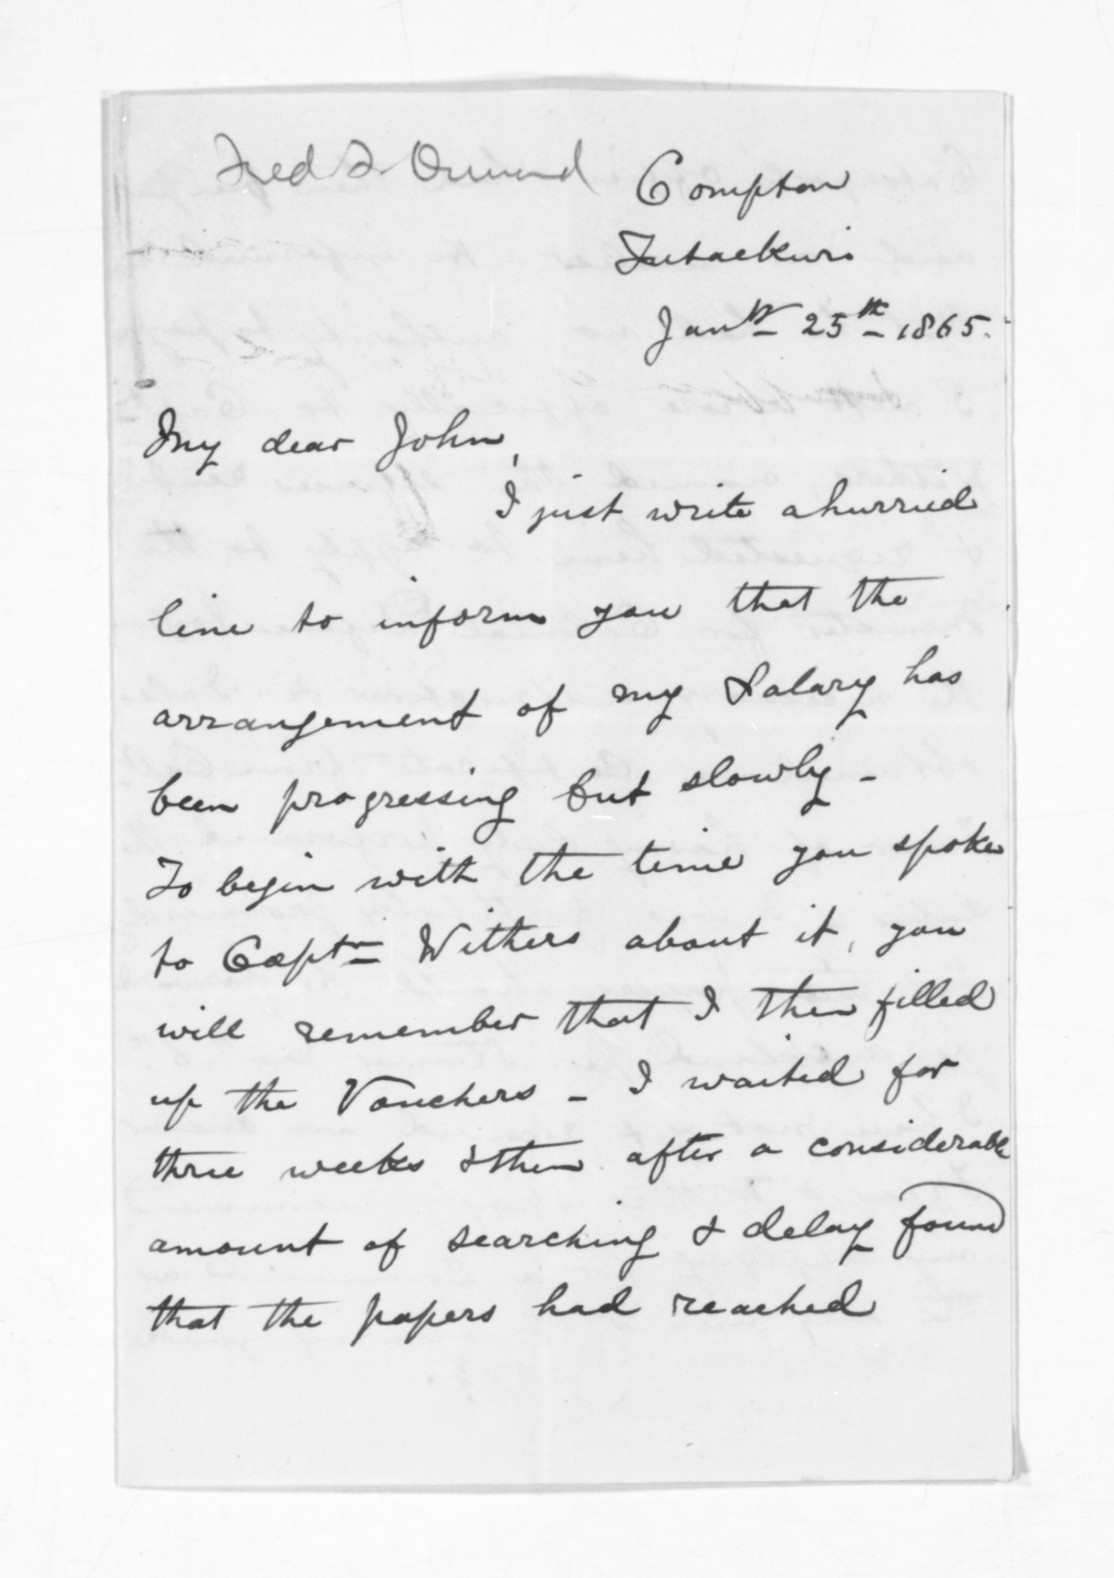 Fred F Ormond
Compton
Tutaekuri
Jany 25th 1865.
My dear John,
I just write a hurried
line to inform you that the
arrangement of my Salary has
been progressing but slowly -
To begin with the time you spoke
to Captn Withers about it, you
will remember that I then filled
up the Vouchers - I waited for
three weeks & then after a considerable
amount of searching & delay found
that the papers had reached